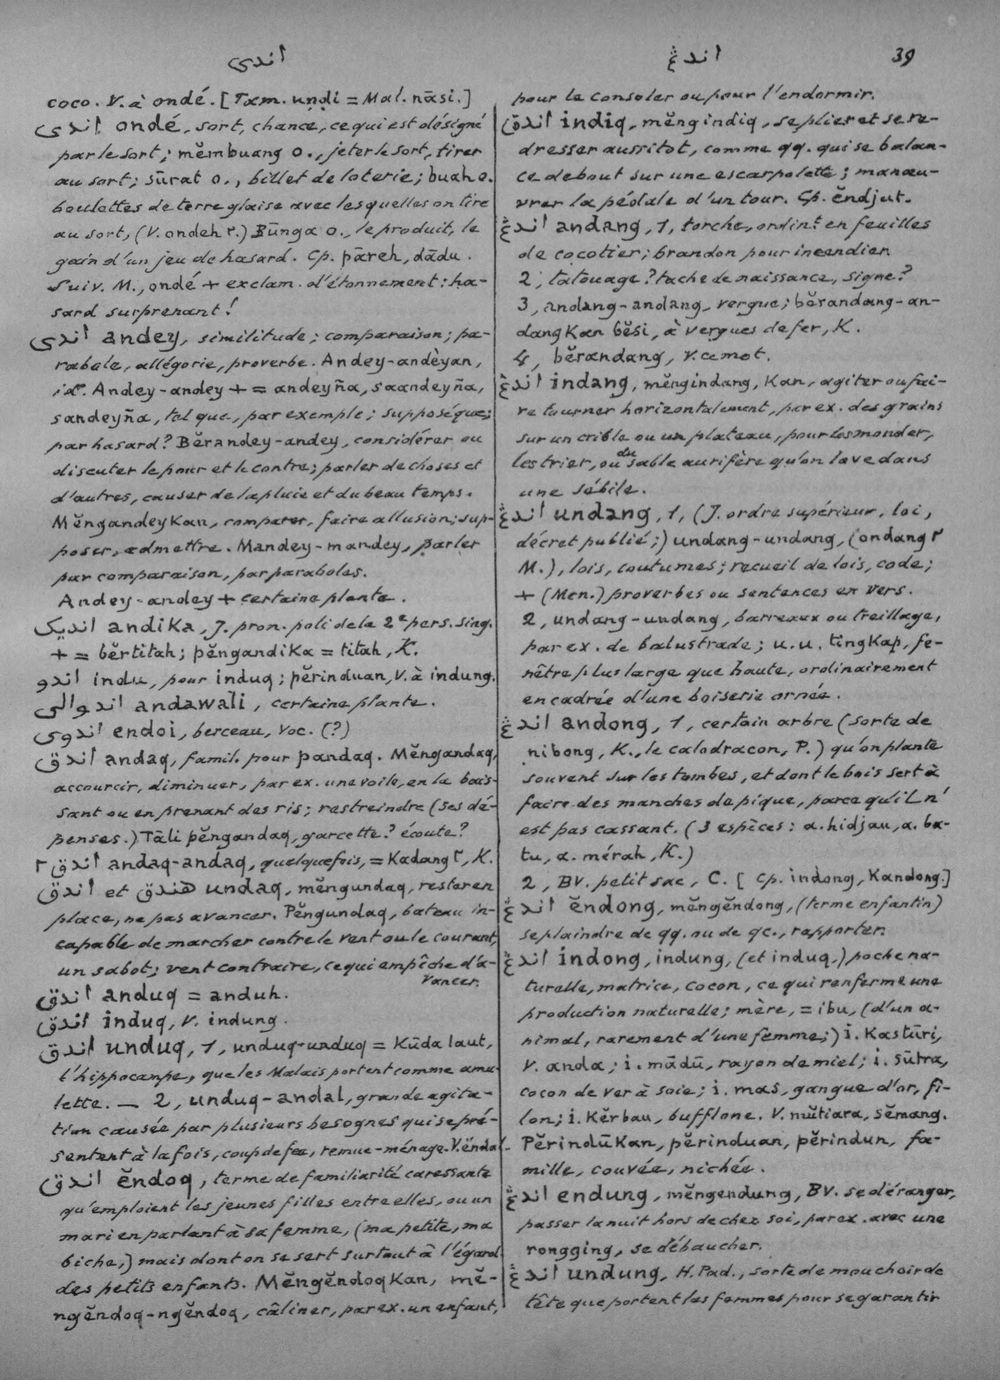 اندى
اندڠ
39
coco. V. à ondé. [Tam. uṇḍi = Mal. nāsi.]
اندى ondé, sort, chance, ce qui est désigné
par le sort; mĕmbuang o., jeter le sort, tirer
au sort; sūrat o., billet de loterie; buah o.
boulettes de terre glaise avec lesquelles on tire
au sort, (V. ondeh ٢.) Būnga o., le produit, le
gain d'un jeu de hasard. Cp. pāreh, dādu.
Suiv. M., ondé + exclam. d'étonnement: ha-
sard surprenant!
اندى andey, similitude; comparaison; pa-
rabole, allégorie, proverbe. Andey-andèyan,
id. Andey-andey + = andeyña, saandeyña,
sandeyña, tel que, par exemple; supposé que;
par hasard? Bĕrandey-andey, considérer ou
discuter le pour et le contre; parler de choses et
d'autres, causer de la pluie et du beau temps.
Mĕngandeykan, comparer, faire allusion; sup-
poser, admettre. Mandey-mandey, parler
par comparaison, par paraboles.
Andey-andey + certaine plante.
انديک andika, J. pron. poli de la 2e pers. sing.
+ = bĕrtitah; pĕngandika = titah, K.
اندو indu, pour induq; pĕrinduan, V. à indung.
اندوالى andawali, certaine plante.
اندوى endoi, berceau, Voc. (?)
اندق andaq, famil. pour pandaq. Mĕngandaq,
accourcir, diminuer, par ex. une voile, en la bais-
sant ou en prenant des ris; restreindre (ses dé-
penses.) Tāli pĕngandaq, garcette? écoute?
اندق٢ andaq-andaq, quelquefois, = Kadang٢, K.
اندق et هندق undaq, mĕngundaq, rester en
place, ne pas avancer. Pĕngundaq, bateau in-
capable de marcher contre le vent ou le courant,
un sabot; vent contraire, ce qui empêche d'a-
vancer.
اندق anduq = anduh.
اندق induq, V. indung.
اندق unduq, 1, unduq-unduq = Kūda laut,
l'hippocampe, que les Malais portent comme amu-
lette. — 2, unduq-andal, grande agita-
tion causée par plusieurs besognes qui se pré-
sentent à la fois, coup de feu, remue-ménage. V. ĕndal.
اندق ĕndoq, terme de familiarité caressante
qu'emploient les jeunes filles entre elles, ou un
mari en parlant à sa femme, (ma petite, ma
biche,) mais dont on se sert surtout à l'égard
des petits enfants. Mĕngĕndoqkan, mĕ-
ngĕndoq-ngĕndoq, câliner, par ex. un enfant,
pour le consoler ou pour l'endormir.
اندق indiq, mĕngindiq, se plier et se re-
dresser aussitot, comme qq. qui se balan-
ce debout sur une escarpolette; manœu-
vrer la pédale d'un tour. Cp. ĕndjut.
اندڠ andang, 1, torche, ordin.t en feuilles
de cocotier; brandon pour incendier.
2, tatouage? tache de naissance, signe?
3, andang-andang, vergue; bĕrandang-an-
dangkan bĕsi, à vergues de fer, K.
4, bĕrandang, V. ce mot.
اندڠ indang, mĕngindang, kan, agiter ou fai-
re tourner horizontalement, par ex. des grains
sur un crible ou un plateau, pour les monder,
les trier, ou du sable aurifère qu'on lave dans
une sébile.
اندڠ undang, 1, (J. ordre supérieur, loi,
décret publié;) undang-undang, (ondang٢
M.), lois, coutumes; recueil de lois, code;
+ (Men.) proverbes ou sentences en vers.
2, undang-undang, barreaux ou treillage,
par ex. de balustrade; u.u. tingkap, fe-
nêtre plus large que haute, ordinairement
encadrée d'une boiserie ornée.
اندڠ andong, 1, certain arbre (sorte de
nibong, K., le calodracon, P.) qu'on plante
souvent sur les tombes, et dont le bois sert à
faire des manches de pique, parce qu'il n'
est pas cassant. (3 espèces: a. hidjau, a. ba-
tu, a. mérah, K.)
2, BV. petit sac, C. [Cp. indong, Kandong.]
اندڠ ĕndong, mĕngĕndong, (terme enfantin)
se plaindre de qq. ou de qc., rapporter.
اندڠ indong, indung, (et induq,) poche na-
turelle, matrice, cocon, ce qui renferme une
production naturelle; mère, = ibu, (d'un a-
nimal, rarement d'une femme;) i. Kastūri,
V. anda; i. mādū, rayon de miel; i. sūtra,
cocon de ver à soie; i. mas, gangue d'or, fi-
lon; i. Kĕrbau, bufflone. V. mŭtiara, sĕmang.
Pĕrindūkan, pĕrinduan, pĕrindun, fa-
mille, couvée, nichée.
اندڠ endung, mĕngendung, BV. se déranger,
passer la nuit hors de chez soi, par ex. avec une
rongging, se débaucher.
اندڠ undung, H. Pad., sorte de mouchoir de
tête que portent les femmes pour se garantir